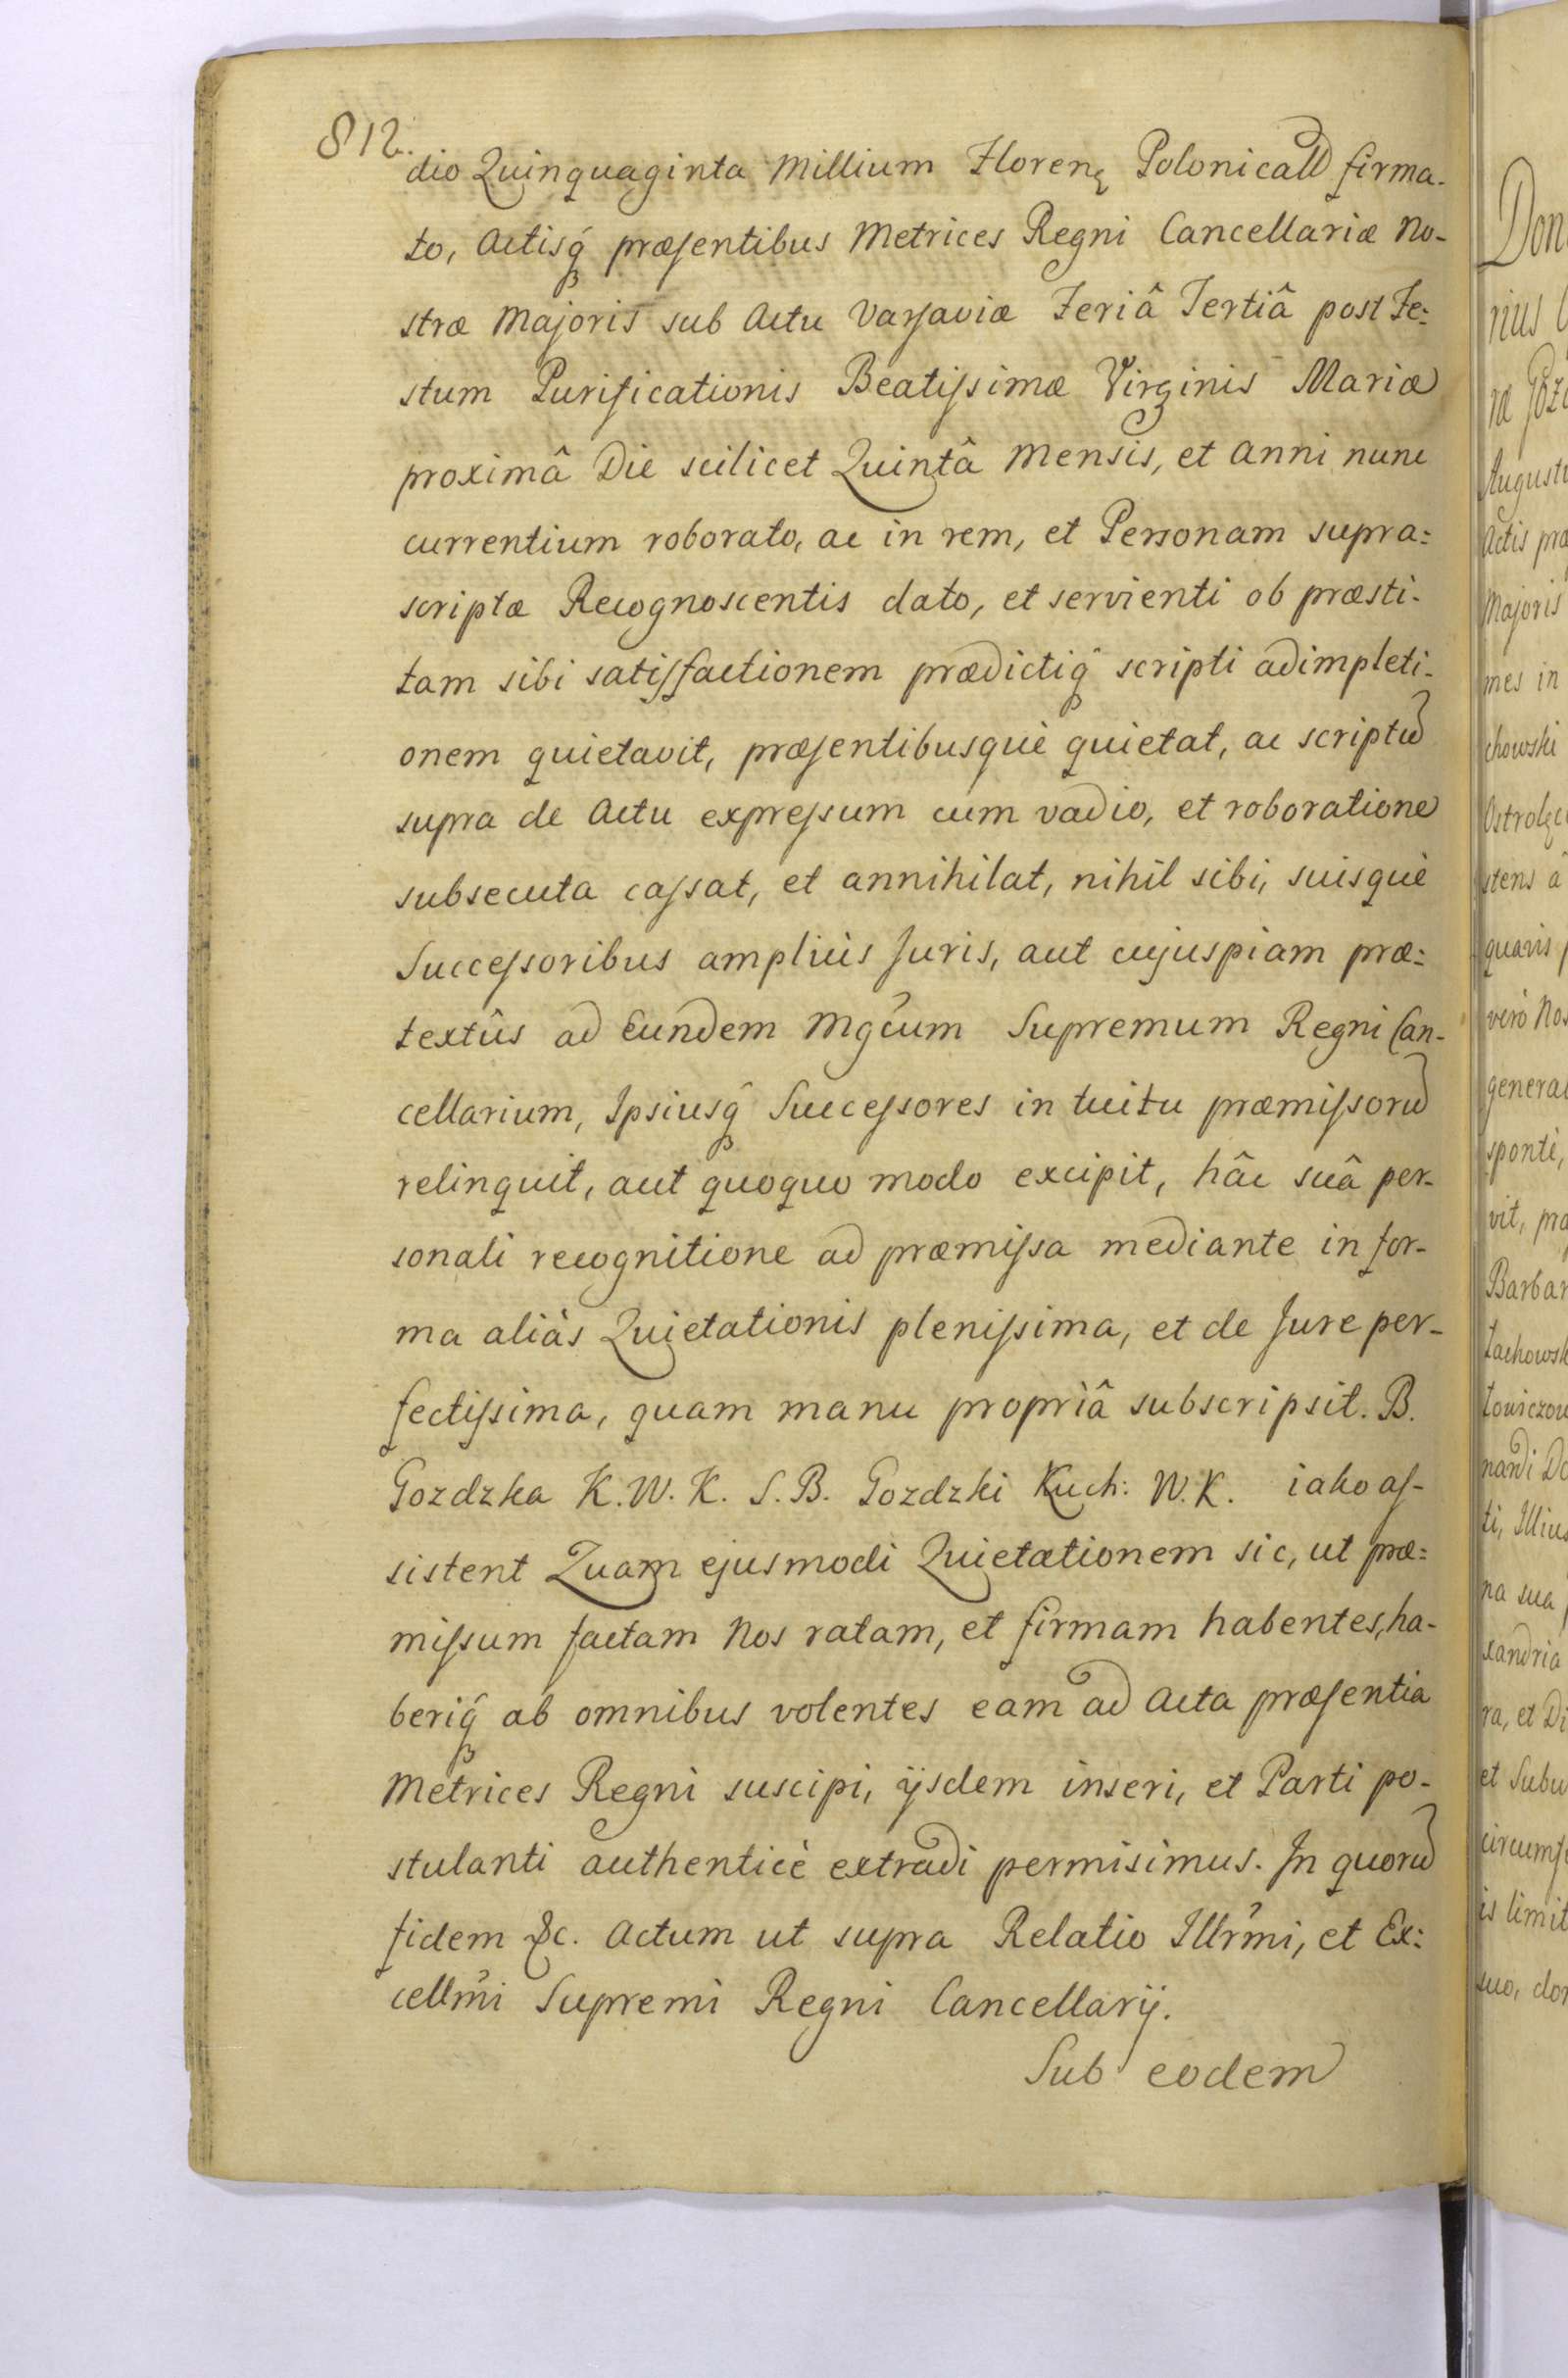 812.
dio Quinquaginta Millium Florenę Polonicałd firma-
to, Actisq́ præsentibus Metrices Regni Cancellariæ No-
stræ Majoris sub Actu Varsaviæ Feriâ Tertiâ post Fe:
stum Purificationis Beatissimæ Virginis Mariæ
proximâ Die scilicet Quintâ Mensis, et Anni nunc
currentium roborato, ac in rem, et Personam supra:
scriptæ Recognoscentis dato, et servienti ob præsti-
tam sibi satisfactionem prædictiq́ scripti adimpleti-
onem quietavit, præsentibusquè quietat, ac scriptū
supra de Actu expressum cum vadio, et roboratione
subsecuta cassat, et annihilat, nihil sibi, suisquè
Successoribus ampliùs Juris, aut cujuspiam præ:
textûs ad Eundem Mgc̃um Supremum Regni Can-
cellarium, Ipsiusq́ Successores in tuitu præmissorū
relinquit, aut quoquo modo excipit, hâc suâ per-
sonali recognitione ad præmissa mediante in for-
ma aliàs Quietationis plenissima, et de Jure per-
fectissima, quam manu propriâ subscripsit. B.
Gozdzka K.W.K. S.B. Gozdzki Kuch: W.K. iako as-
sistent Quam ejusmodi Quietationem sic, ut præ:
missum factam Nos ratam, et firmam habentes, ha-
beriq́ ab omnibus volentes eam ad Acta præsentia
Metrices Regni suscipi, ijsdem inseri, et Parti po-
stulanti authenticè extradi permisimus. In quorū
fidem &c. Actum ut supra Relatio Illr̃mi, et Ex:
cellm̃i Supremi Regni Cancellarij.
Sub eodem
Don
rius
Augustu
Actis præ
Majoris
mes in
chowski
Ostrołęc
stens â
quavis
verò Nos
general
spontè,
vit, præ
Barbar
nandi Do
ti, Illius
na sua
xandria
ra, et Di
et Subu
circumf
is limit
suo, don